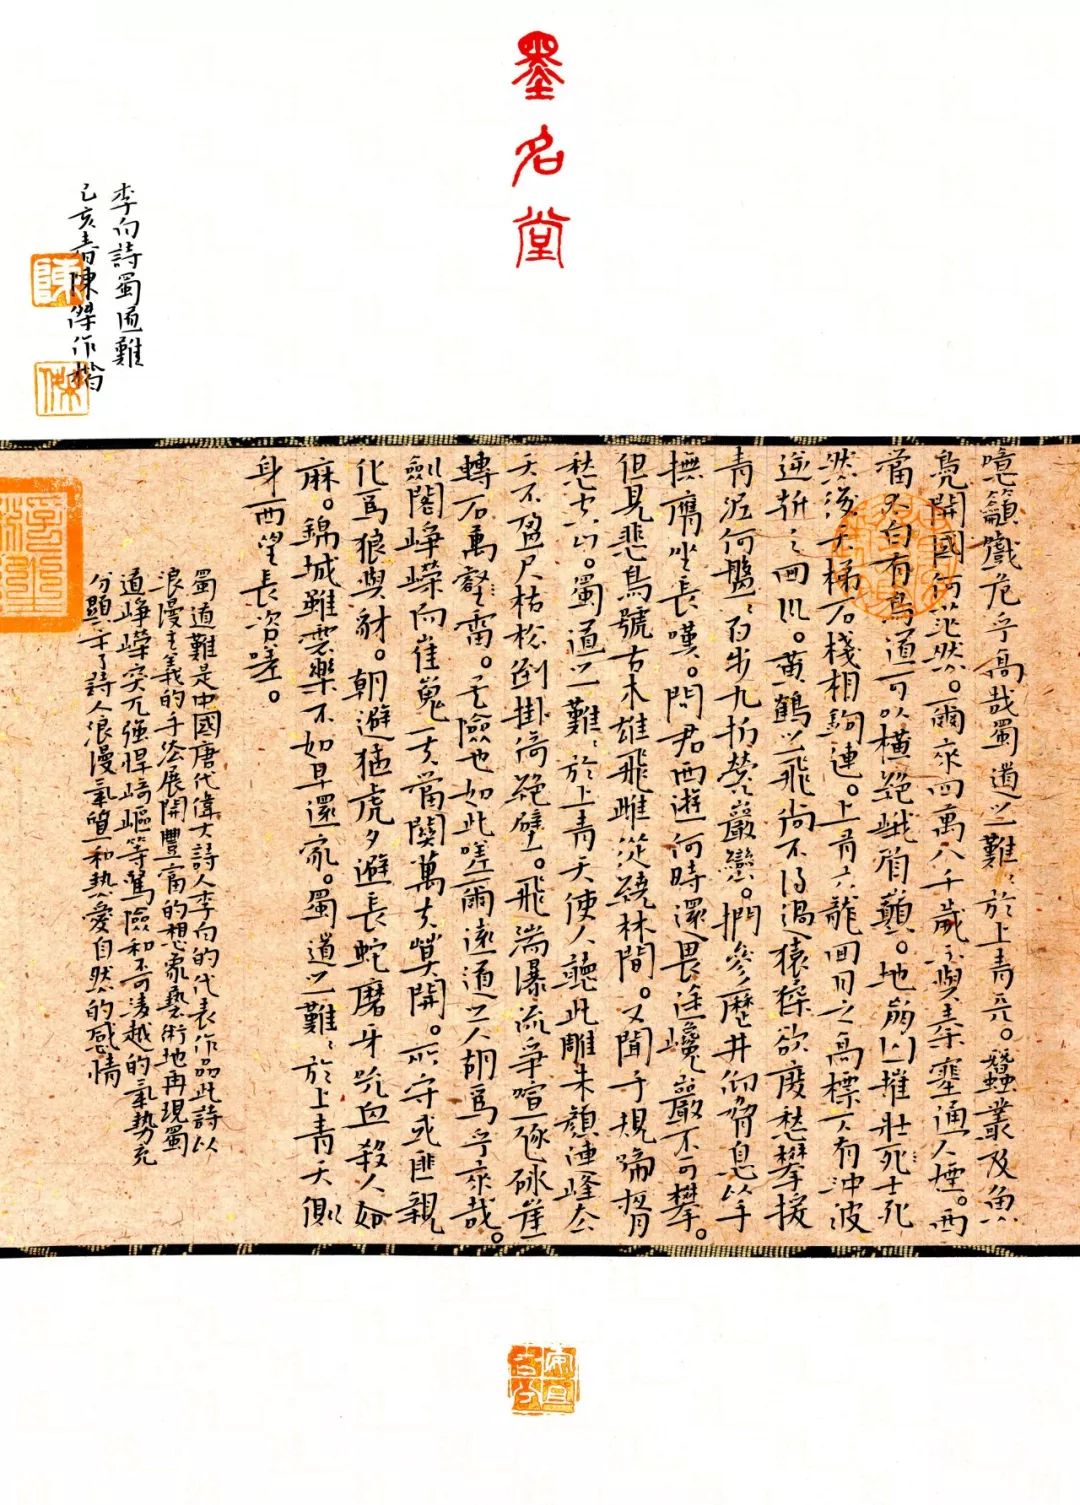 墨名堂
李白詩蜀道難
己亥春陳傑作楷
陳
傑
噫籲戲危乎高哉蜀道之難〻於上青天。蠶叢及魚
鳧開國何茫然。爾來四萬八千歲不與秦塞通人煙。西
當太白有鳥道可以橫絕峨眉顛。地崩山摧壯士死
然後天梯石棧相鉤連。上有六龍回日之高標下有沖波
逆折之回川。黃鶴之飛尚不得過猿猱欲度愁攀援
青泥何盤〻百步九折縈巖巒。捫參歷井仰脅息以手
撫膺坐長嘆。問君西遊何時還畏途巉巖不可攀。
但見悲鳥號古木雄飛雌從繞林間。又聞子規啼夜月
愁空山。蜀道之難〻於上青天使人聽此雕朱顏連峰去
天不盈尺枯松倒掛倚絕壁。飛湍瀑流爭喧豗砯崖
轉石萬壑雷。其險也如此嗟爾遠道之人胡爲乎來哉。
劍閣崢嶸而崔嵬一夫當關萬夫莫開。所守或匪親
化爲狼與豺。朝避猛虎夕避長蛇磨牙吮血殺人如
麻。錦城雖雲樂不如早還家。蜀道之難〻於上青天側
身西望長咨嗟。
蜀道難是中國唐代偉大詩人李白的代表作品此詩以
浪漫主義的手法展開豐富的想象藝術地再現蜀
道崢嶸突兀強悍崎嶇等驚險和不可淩越的氣勢充
分顯示了詩人浪漫氣質和熱愛自然的感情